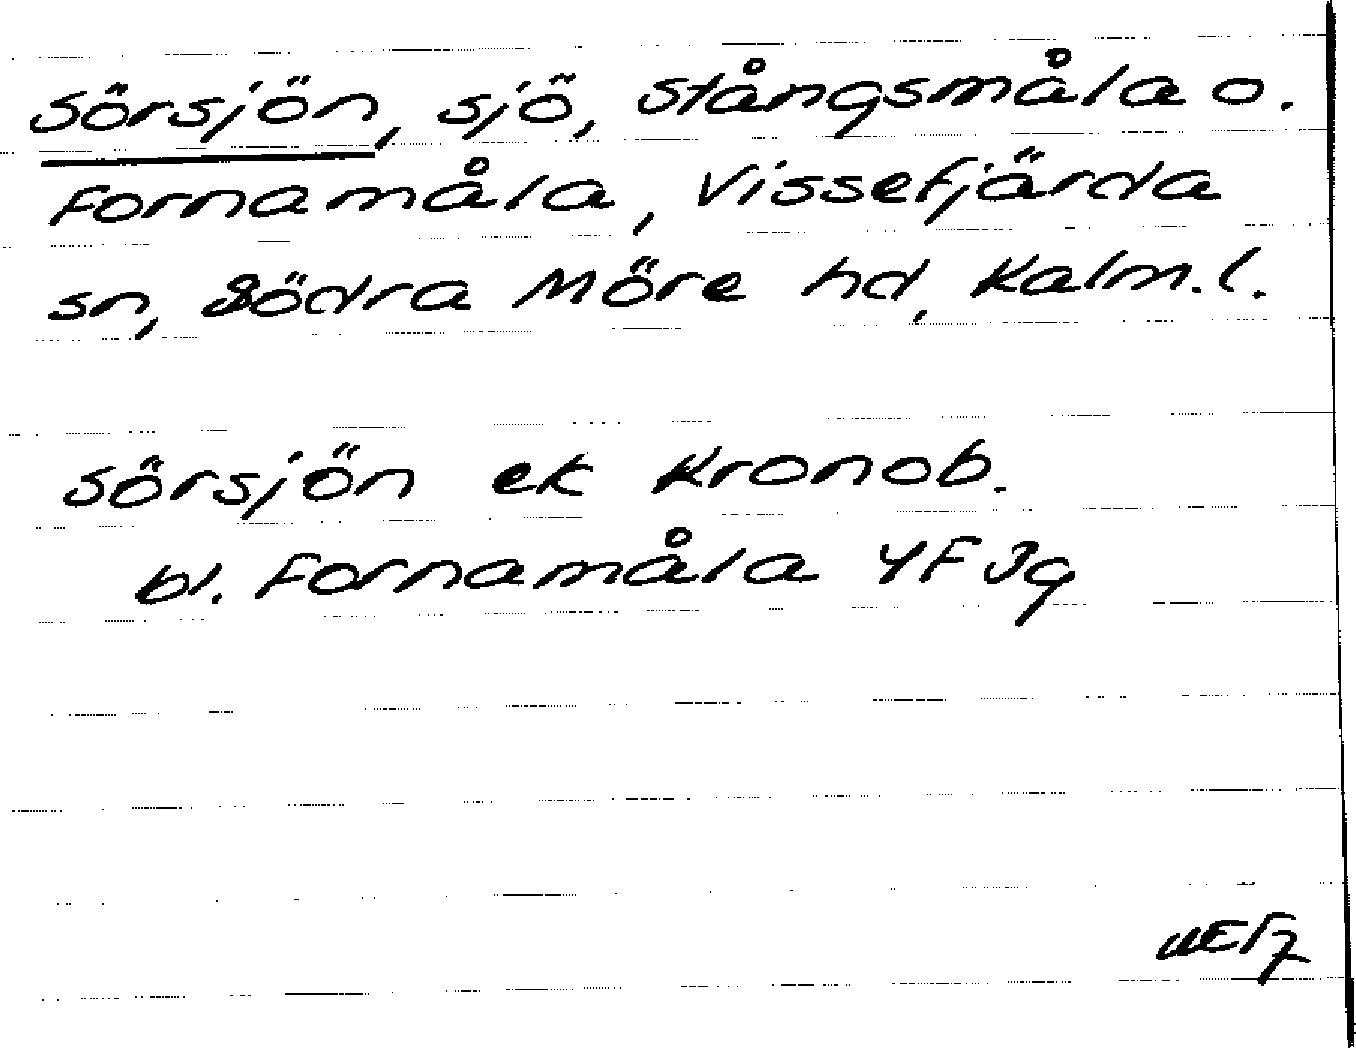 Sörsjön, sjö, Stångsmåla o.
Fornamåla, Vissefjärda
sn, Södra Möre hd, Kalm. l.
Sörsjön ek Kronob.
bl. Fornamåla 4F